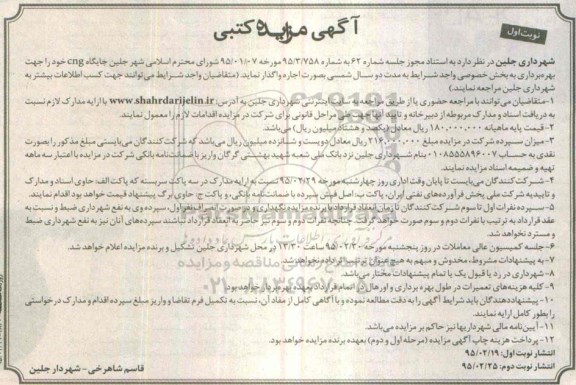 آگهی مزایده کتبی
نوبت اول
شهرداری جلین در نظر دارد به استناد مجوز جلسه شماره ۶۲ به شماره ۹۵/۳/۷۵۸ مورخه ۹۵/۰۱/۰۷ شورای محترم اسلامی شهر جلین جایگاه cng خود را جهت
بهره‌برداری به بخش خصوصی واجد شرایط به مدت دو سال شمسی بصورت اجاره واگذار نماید. (متقاضیان واجد شرایط می‌توانند جهت کسب اطلاعات بیشتر به
شهرداری جلین مراجعه نمایند.)
۱- متقاضیان می‌توانند با مراجعه حضوری یا از طریق مراجعه به سایت اینترنتی شهرداری جلین به آدرس: www.shahrdarijelin.ir با ارایه مدارک لازم نسبت
به دریافت اسناد و مدارک مربوطه از دبیرخانه و تایید آن جهت طی مراحل قانونی برای شرکت در مزایده اقدامات لازم را معمول نمایند.
۲- قیمت پایه ماهیانه ۱۸۰،۰۰۰،۰۰۰ ریال معادل (یکصد و هشتاد میلیون ریال) می‌باشد.
۳- میزان سپرده شرکت در مزایده مبلغ ۲۱۶،۰۰۰،۰۰۰ ریال معادل دویست و شانزده میلیون ریال می‌باشد که شرکت کنندگان می‌بایستی مبلغ مذکور را بصورت
نقدی به حساب ۰۱۰۸۵۵۵۸۹۶۰۰۷ بنام شهرداری جلین نزد بانک ملی شعبه شهید بهشتی گرگان واریز یا ضمانت‌نامه بانکی شرکت در مزایده با اعتبار سه ماهه
تهیه و ضمیمه اسناد مزایده نمایند.
۴- شرکت کنندگان می‌بایست تا پایان وقت اداری روز چهارشنبه مورخه ۹۵/۰۲/۲۹ نسبت به ارایه مدارک در سه پاکت سربسته که پاکت الف: حاوی اسناد و مدارک
و تاییدیه شرکت ملی پخش فرآورده‌های نفتی ایران، پاکت ب: اصل فیش سپرده یا ضمانت‌نامه بانکی، و پاکت ج: حاوی برگ پیشنهاد قیمت خود اقدام نمایند.
۵- سپرده نفرات اول تا سوم شرکت کنندگان تا زمان انعقاد قرارداد با برنده مزایده نگهداری و در صورت انصراف نفر اول، سپرده وی به نفع شهرداری ضبط و نسبت به
عقد قرارداد به ترتیب با نفرات دوم و سوم صورت خواهد گرفت. چنانچه نفرات دوم و سوم نیز حاضر به انعقاد قرارداد نباشند سپرده‌های آنان نیز به نفع شهرداری ضبط
و مسترد نخواهد شد.
۶- جلسه کمیسیون عالی معاملات در روز پنجشنبه مورخه ۹۵/۰۲/۳۰ ساعت ۱۳/۳۰ در محل شهرداری جلین تشکیل و برنده مزایده اعلام خواهد شد.
۷- به پیشنهادات مشروط، مخدوش و مبهم به هیچ عنوان ترتیب اثر داده نخواهد شد.
۸- شهرداری در رد یا قبول یک یا تمام پیشنهادات مختار می‌باشد.
۹- کلیه هزینه‌های تعمیرات در طول بهره برداری و اورهال تا اتمام قرارداد به عهده بهره‌بردار خواهد بود.
۱۰- پیشنهاددهندگان باید شرایط آگهی را به دقت مطالعه نموده و با آگاهی کامل از مفاد آن، نسبت به تکمیل فرم تقاضا و واریز مبلغ سپرده اقدام و مدارک درخواستی
را بطور کامل ارایه نمایند.
۱۱- آیین‌نامه مالی شهرداریها نیز حاکم بر مزایده می‌باشد.
۱۲- پرداخت هزینه چاپ آگهی مزایده (مرحله اول و دوم) بعهده برنده مزایده خواهد بود.
انتشار نوبت اول: ۹۵/۰۲/۱۹
انتشار نوبت دوم: ۹۵/۰۲/۲۵
قاسم شاهرخی - شهردار جلین